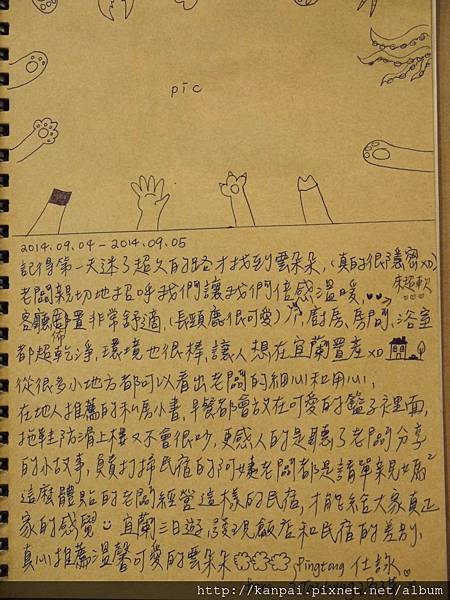 pic
2014.09.04-2014.09.05
記得第一天迷了超久的路才找到雲朵朵,(真的很隱密XD)
老闆親切地招呼我們讓我們倍感溫暖,
超軟
客廳佈置非常舒適,(長頸鹿很可愛),廚房、房間、浴室
都超乾淨,環境也很棒,讓人想在宜蘭置產XD
從很多小地方都可以看出老闆的細心和用心,
在地人推薦的私房小書,早餐都會放在可愛的籃子裡面,
拖鞋防滑上樓又不會很吵,更感人的是聽了老闆分享
的小故事,負責打掃民宿的阿姨老闆都是請單親媽媽
這麼體貼的老闆經營這樣的民宿,才能給大家真正
家的感覺 宜蘭二日遊,發現飯店和民宿的差別,
真心推薦溫馨可愛的雲朵朵 Pingtong 仕詠
http://kanpai.pixnet.net/album